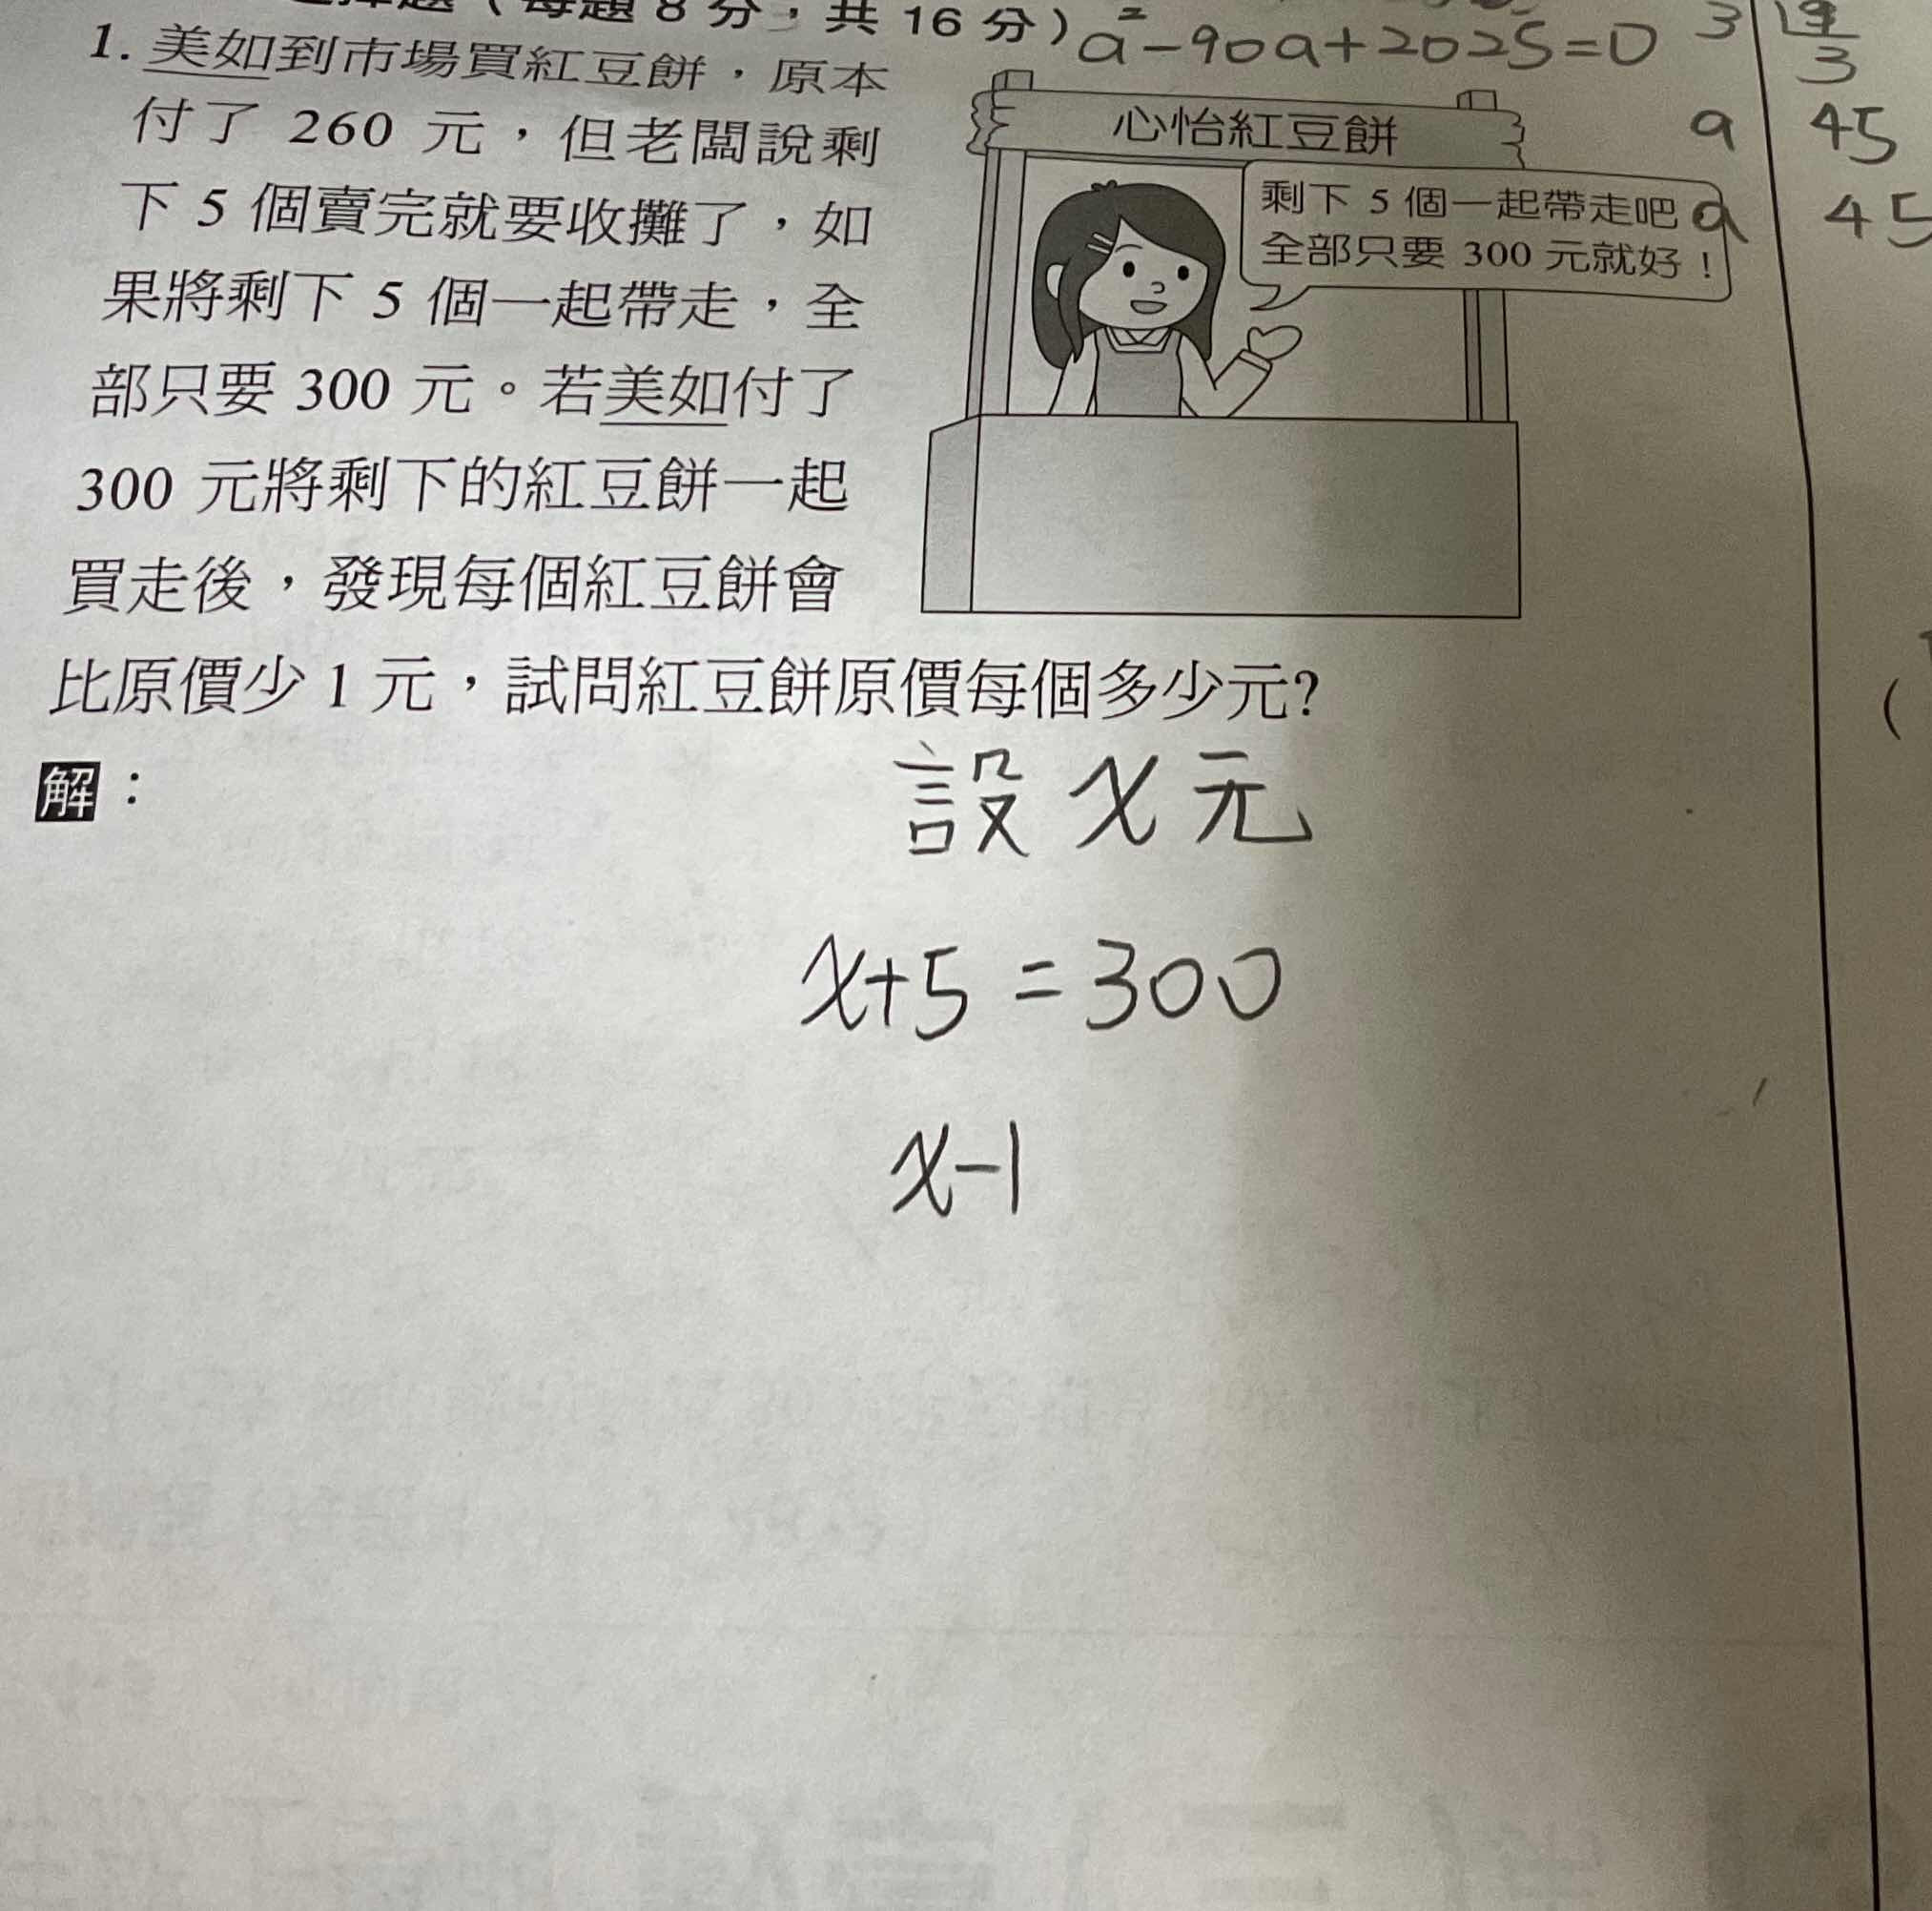 (每題 8 分，共 16 分)
a²-90a+2025=0
3
3
a 45
a 45
1. 美如到市場買紅豆餅，原本
付了 260 元，但老闆說剩
下 5 個賣完就要收攤了，如
果將剩下 5 個一起帶走，全
部只要 300 元。若美如付了
300 元將剩下的紅豆餅一起
買走後，發現每個紅豆餅會
比原價少 1 元，試問紅豆餅原價每個多少元?
心怡紅豆餅
剩下 5 個一起帶走吧
全部只要 300 元就好！
(
解：
設 x 元
x+5=300
x-1